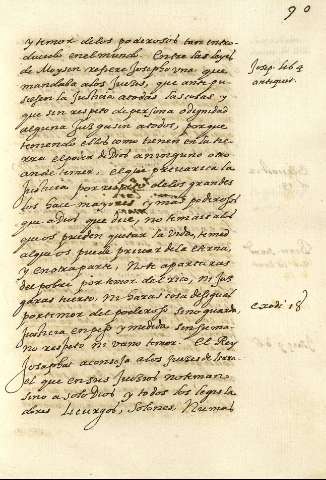 90
y temor de los poderosos tan intro-
ducido en el mundo. Entre las leyes
de Moysen refiere Josepho una que
mandaba a los Jueces, que ante pu-
siesen la Justicia a todas las cosas y
que sin respeto de persona o dignidad
alguna Juzguasen a todos, porque
temiendo ellos como tienen en la tie-
rra el poder de Dios a ninguno otro
an de temer. el que prevarica la
Justicia por respeto de los grandes
los hace mayores y mas poderosos
que a Dios que dice, no temais a los
que os pueden quitar la vida, temed
al que os puede privar de la eterna,
y en otra parte, No te apartaras
del pobre por temor del rico, ni Juz
garas tuerto, ni haras cosa desigual
por temor del poderoso sino guarda
Justicia en peso y medida sin humano
respeto ni vano temor. El Rey
Josaphat aconseja a los Jueces de Isra-
el que en sus Juicios no teman
sino a solo Dios y todos los legisla
dores Licurgos, Solones, Numas
Josep. lib 4
antiquit.
exodi 18